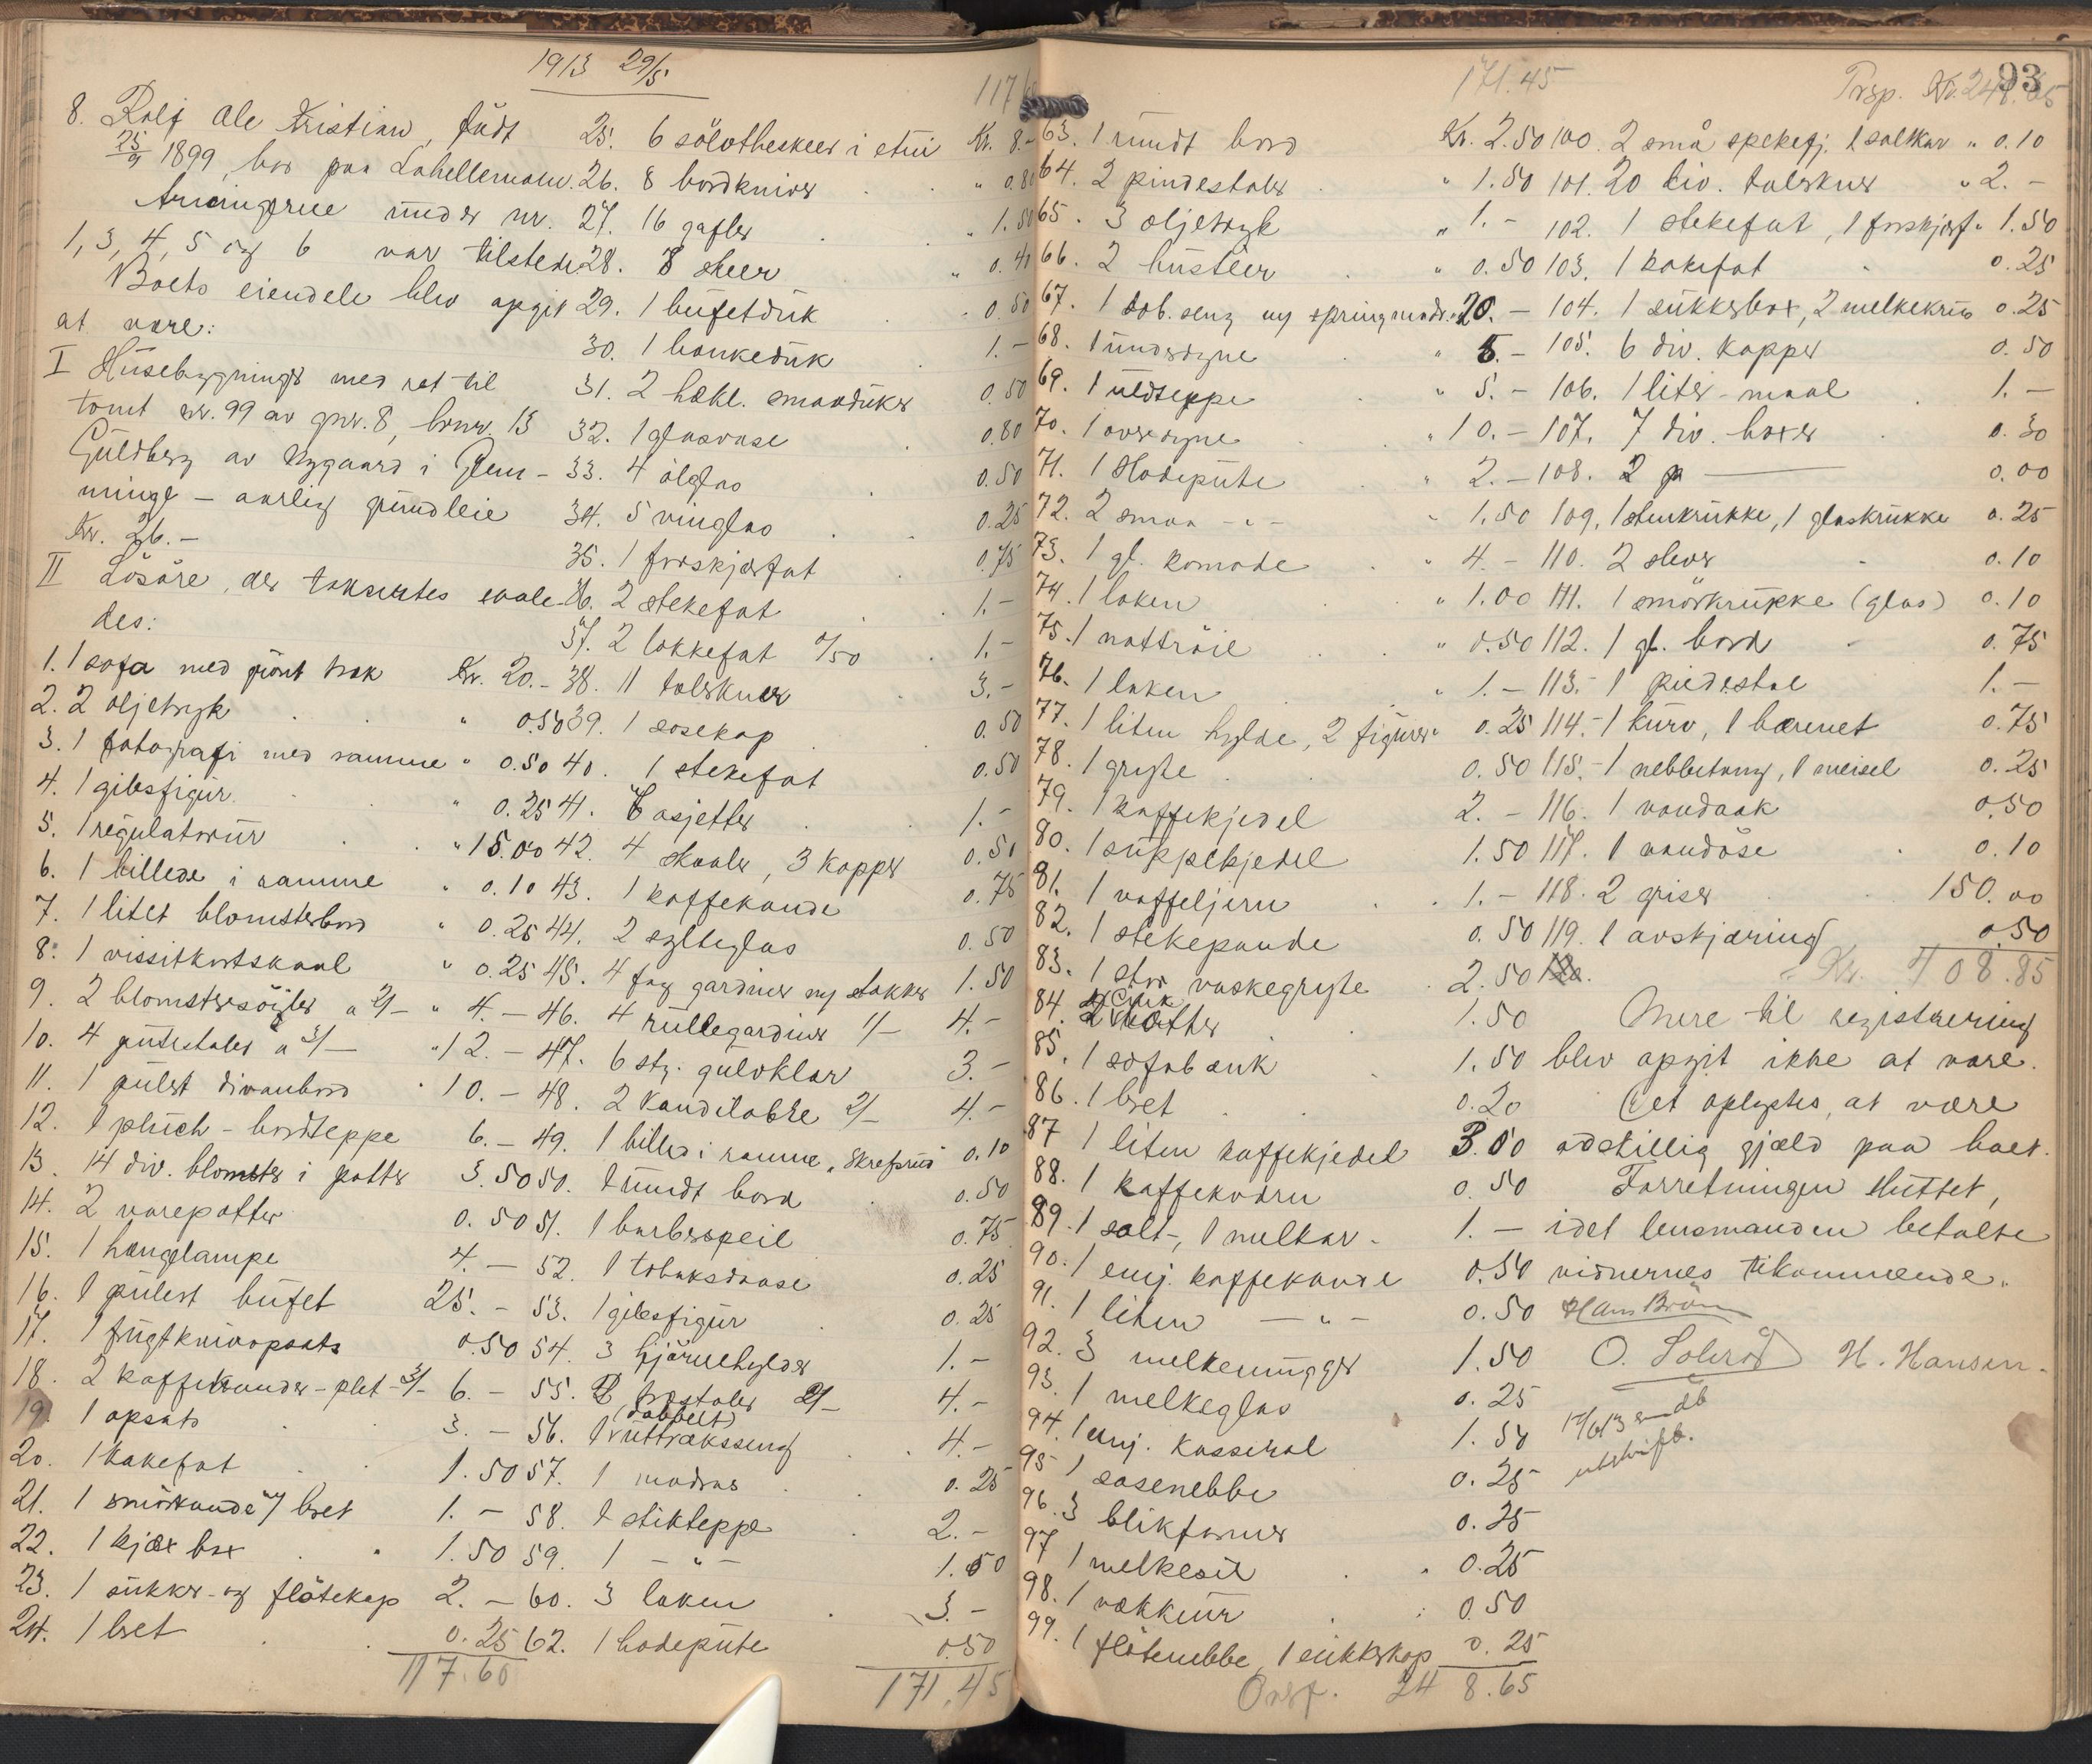 1913 29/5
8. Rolf Ale Kristian, født
25/9 1899, bor paa Lahellemoen.
Arvingerne under nr.
1, 3, 4, 5 og 6 var tilstede
Boets eiendele blev opgit
at være:
I Husebygninger med ret til
tomt nr. 99 av gnr. 8, brnr. 13
Guldberg av Nygaard i Glem-
minge - aarlig grundleie
Kr. 26.-
II Løsøre, der taksertes saale-
des:
1. 1 sofa med grønt trek Kr. 20.-
2. 2 oljetryk " 0.50
3. 1 fotografi med ramme " 0.50
4. 1 gibsfigur " 0.25
5. 1 regulatorur " 15.00
6. 1 billede i ramme " 0.10
7. 1 litet blomsterbord " 0.25
8. 1 vissitkortskaal " 0.25
9. 2 blomstersøiler a 2/- " 4.-
10. 4 putestoler a 3/- " 12.-
11. 1 pulert divanbord " 10.-
12. 1 plüch-bordteppe 6.-
13. 14 div. blomster i potter 3.50
14. 2 varepotter 0.50
15. 1 hængelampe 4.-
16. 1 pulert bufet 25.-
17. 1 frugtknivopsats 0.50
18. 2 kaffekander - plet - 3/- 6.-
19. 1 opsats 3.-
20. 1 kakefat 1.50
21. 1 smørkande m/ bret 1.-
22. 1 kjæx box 1.50
23. 1 sukker- og fløtekop 2.-
24. 1 bret 0.25
117.60
117.60
25. 6 sølvtheskeer i etui Kr. 8.-
26. 8 bordkniver " 0.80
27. 16 gafler " 1.50
28. 8 skeer " 0.40
29. 1 bufetduk " 0.50
30. 1 bankeduk 1.-
31. 2 hækl. smaaduker 0.50
32. 1 glasvase 0.80
33. 4 ølglas 0.50
34. 5 vinglas 0.25
35. 1 forskjærfat 0.75
36. 2 stekefat 1.-
37. 2 lokkefat 0/50 1.-
38. 11 talerkner 3.-
39. 1 sosekop 0.50
40. 1 stekefat 0.50
41. 6 asjetter 1.-
42. 4 skaaler, 3 kopper 0.50
43. 1 kaffekande 0.75
44. 2 sylteglas 0.50
45. 4 fag gardiner m/ stokker 1.50
46. 4 rullegardiner 1/- 4.-
47. 6 stg. gulvklær 3.-
48. 2 kandelabre 2/- 4.-
49. 1 billed i ramme, 0.10
50. 1 rundt bord 0.50
51. 1 barberspeil 0.75
52. 1 tobaksdaase 0.25
53. 1 gibsfigur 0.25
54. 3 hjørnehylder 1.-
55. 2 træstoler 2/- 4.-
56. 1 (dobbelt) uttræksseng 4.-
57. 1 madras 0.25
58. 1 stikteppe 2.-
59. 1 - " - 1.50
60. 3 laken 3.-
62. 1 hodepute 0.50
171.45
171.45
63. 1 rundt bord Kr. 2.50
64. 2 pindestoler " 1.50
65. 3 oljetryk " 1.-
66. 2 busteer " 0.50
67. 1 dob. seng m/ springmadr. " 20.-
68. 1 underdyne " 5.-
69. 1 uldteppe " 5.-
70. 1 overdyne " 10.-
71. 1 Hodepute " 2.-
72. 2 smaa - " - " 1.50
73. 1 gl. komode " 4.-
74. 1 laken " 1.00
75. 1 nattrøie " 0.50
76. 1 laken " 1.-
77. 1 liten hylde, 2 figurer " 0.25
78. 1 gryte 0.50
79. 1 kaffekjedel 2.-
80. 1 suppekjedel 1.50
81. 1 vaffeljern 1.-
82. 1 stekepande 0.50
83. 1 stor vaskegryte 2.50
84. 2 bøtter 1.50
85. 1 sofabænk 1.50
86. 1 bret 0.20
87 1 liten kaffekjedel 3.00
88. 1 kaffekværn 0.50
89. 1 salt-, 1 melkar - 1.-
90. 1 emj. kaffekande 0.50
91. 1 liten - " - 0.50
92. 3 melkemugger 1.50
93. 1 melkeglas 0.25
94. 1 emj. kasserol 1.50
95 1 sosenebbe 0.25
96. 3 blikformer 0.25
97 1 melkesil " 0.25
98. 1 vækkeur 0.50
99. 1 fløtenebbe, 1 sukkerkop 0.25
Overf. 248.65
93
Trsp. Kr. 248.65
100. 2 små spekefj. 1 saltkar " 0.10
101. 20 div. talerkner " 2.-
102. 1 stekefat, 1 forskjærf. " 1.50
103. 1 kakefat 0.25
104. 1 sukkerbox, 2 melkekrus 0.25
105. 6 div. kopper 0.50
106. 1 liter-maal 1.-
107. 7 div. boxer 0.30
108. 2 p — 0.00
109. 1 stenkrukke, 1 glaskrukke 0.25
110. 2 slever 0.10
111. 1 smørkrukke (glas) 0.10
112. 1 gl. bord 0.75
113. 1 piedestal 1.-
114. 1 kurv, 1 bærenet 0.75
115. 1 nebbetang, 1 meisel 0.25
116. 1 vandaak 0.50
117. 1 vandøse 0.10
118. 2 griser 150.00
119. 1 avskjæring 0.50
Kr. 408.85
Mere til registrering
blev opgit ikke at være.
Det oplystes, at være
adskillig gjæld paa boet.
Forretningen sluttet,
idet lensmanden betalte
vidnernes tilkommende.
Hans Brun
O. Solerød H. Hansen.
utskrift.